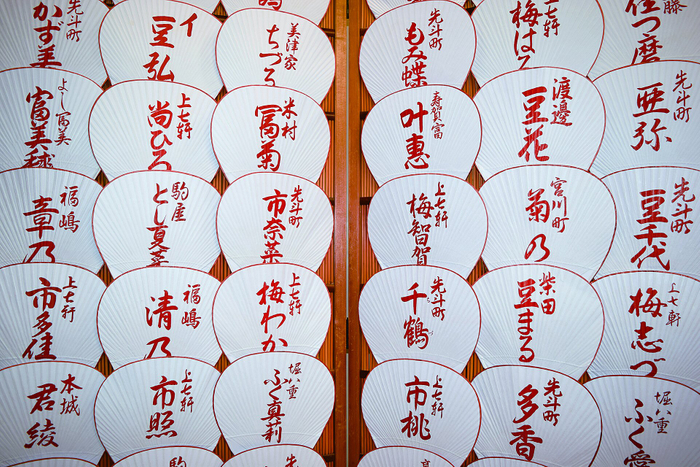 先斗町 かず美
イ 豆弘
美津家 ちづる
先斗町 もみ蝶
梅はる
佳つ磨
よし冨美 富美球
上七軒 尚ひろ
米村 冨菊
寿賀富 叶惠
渡邊 豆花
先斗町 亜弥
福嶋 章乃
駒屋 とし夏菜
先斗町 市奈菜
上七軒 梅智賀
宮川町 菊乃
先斗町 豆千代
上七軒 市多佳
福嶋 清乃
上七軒 梅わか
先斗町 千鶴
柴田 豆まる
上七軒 梅志づ
本城 君綾
上七軒 市照
堀八重 ふく真莉
上七軒 市桃
先斗町 多香
堀八重 ふく愛